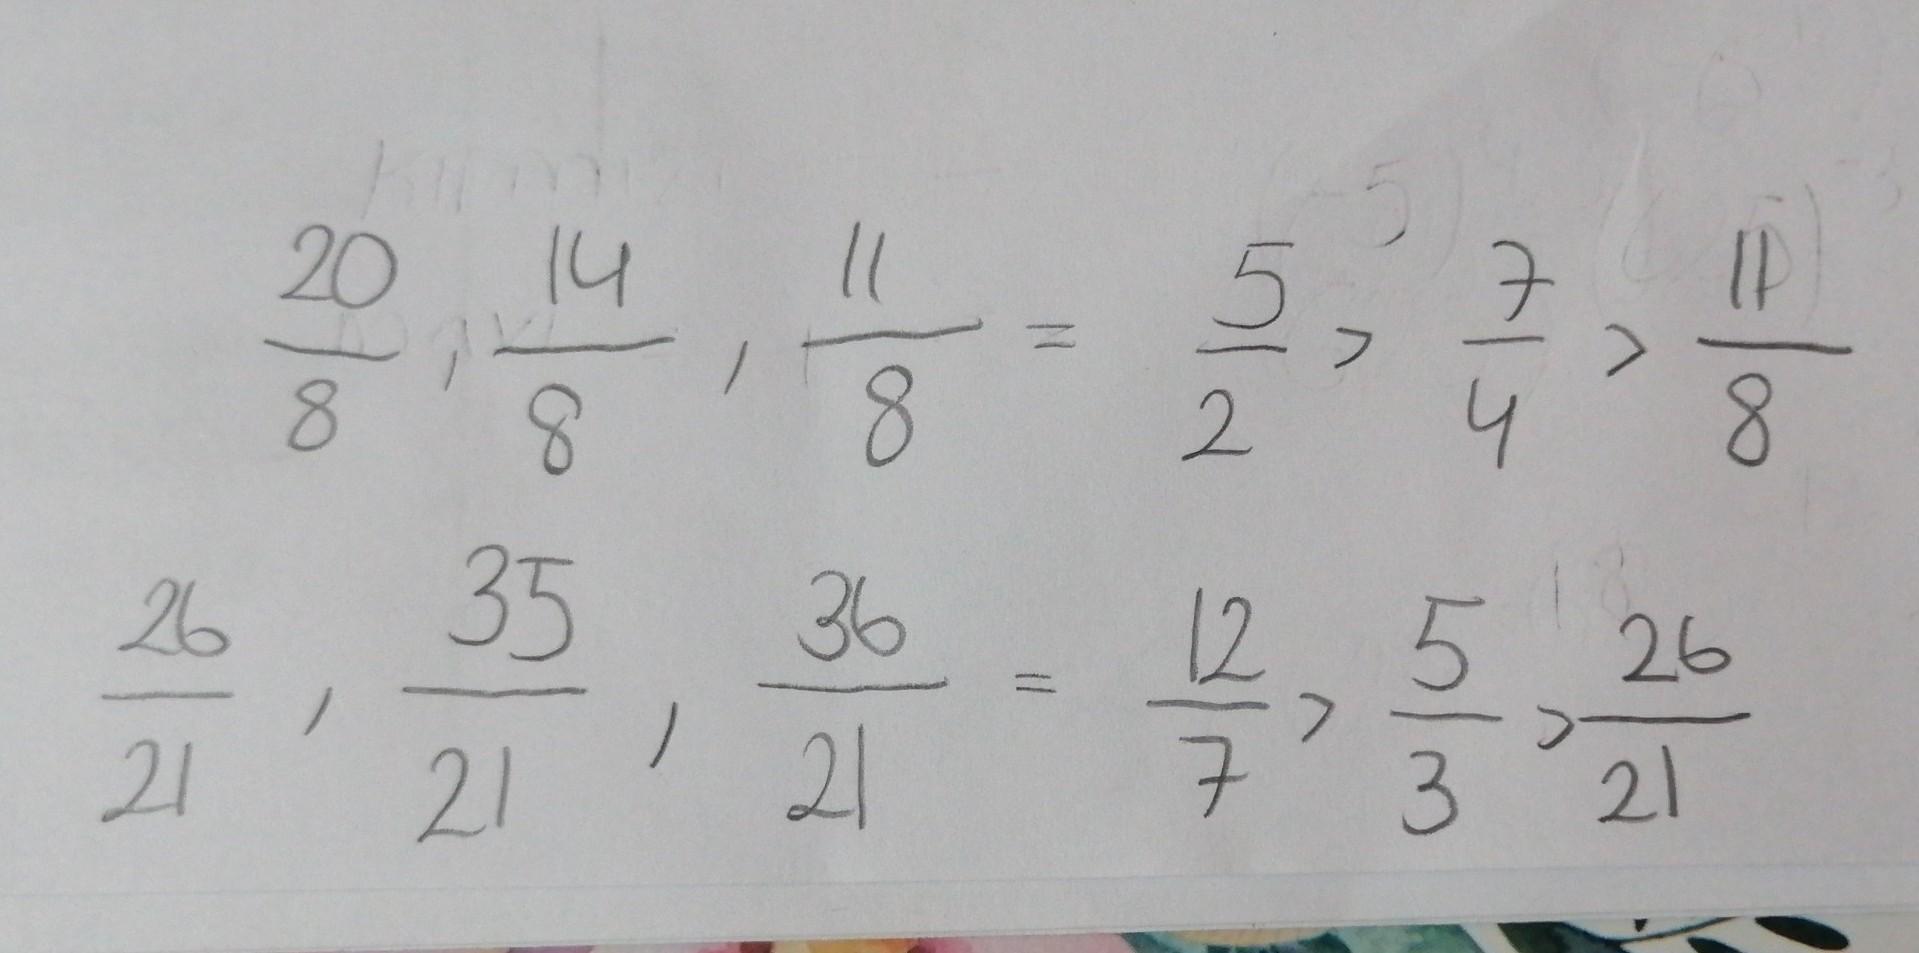 20/8, 14/8, 11/8 = 5/2 > 7/4 > 11/8
26/21, 35/21, 36/21 = 12/7 > 5/3 > 26/21